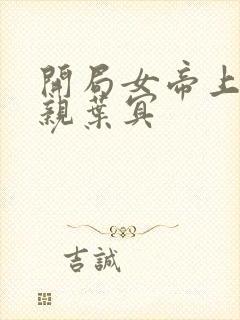 開局女帝上
親葉冥
吉誠